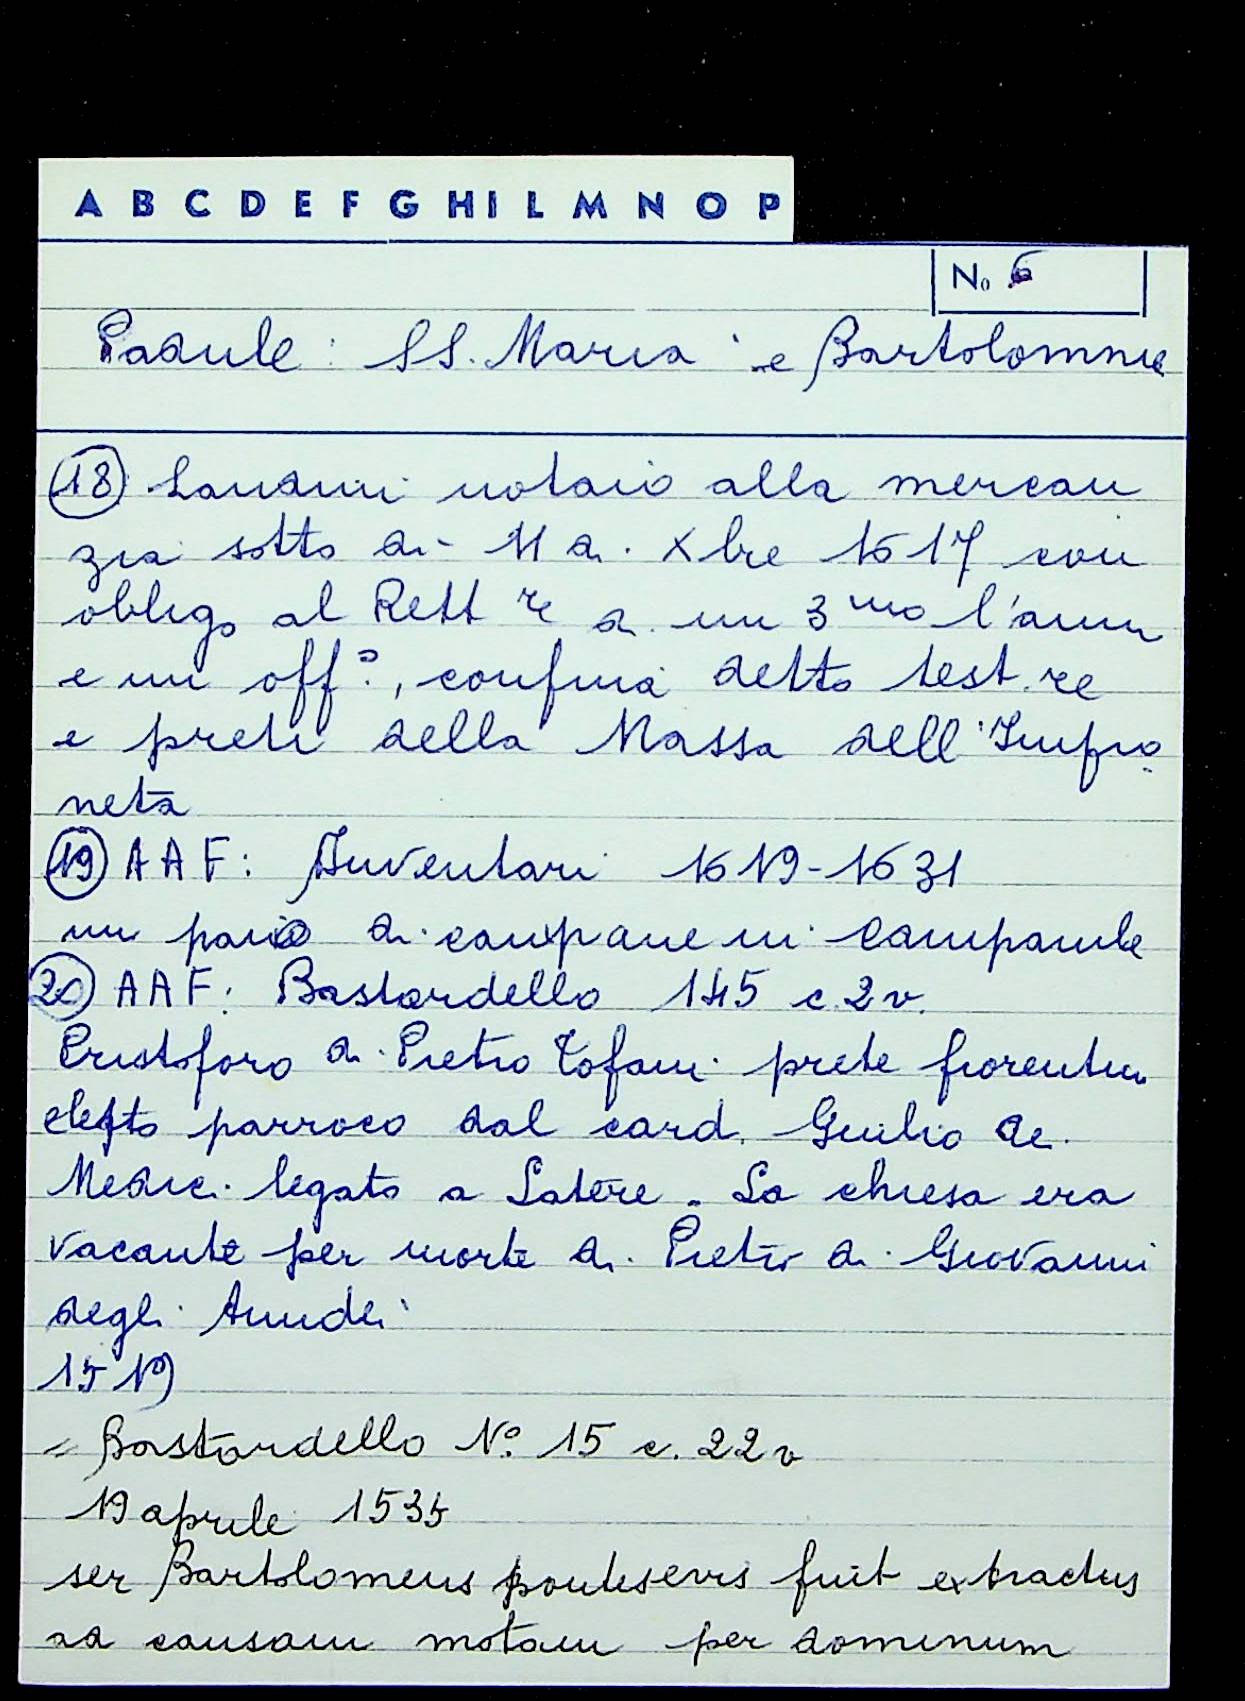 A B C D E F G H I L M N O P
No 6
Padule: SS. Maria e Bartolommeo
18 Landini notaio alla mercan
zia sotto di - 11 di Xbre 1617 con
obligo al Rett re di un 3mo l'anno
e un off°, confina detto test.re
e preti della Massa dell'Impru
neta
19 AAF: Inventari 1619-1631
un paio di campane in campanile
20 AAF: Bastardello 145 c.2v.
Cristoforo di Pietro Tofani prete fiorentino
eletto parroco dal card. Giulio de
Medici legato a Latere. La chiesa era
vacante per morte di Pietro di Giovanni
degli
1519
= Bastardello N° 15 c. 22v
19 aprile 1535
ser Bartolomeus fuit extractus
ad causam motam per dominum